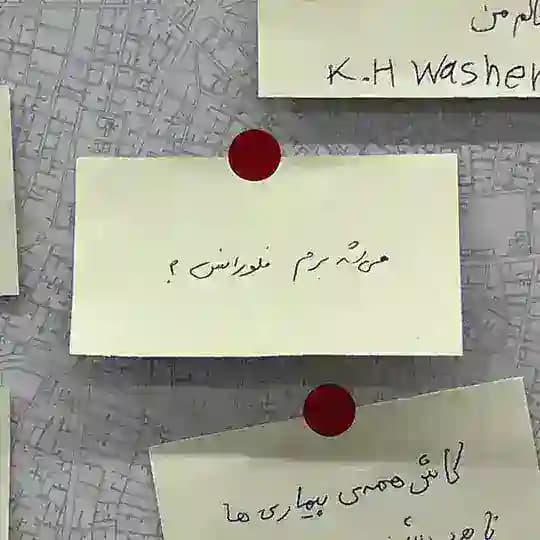 من
K.H Washer
میشه برم فلورانس ؟
کاش همه‌ی بیماری ها